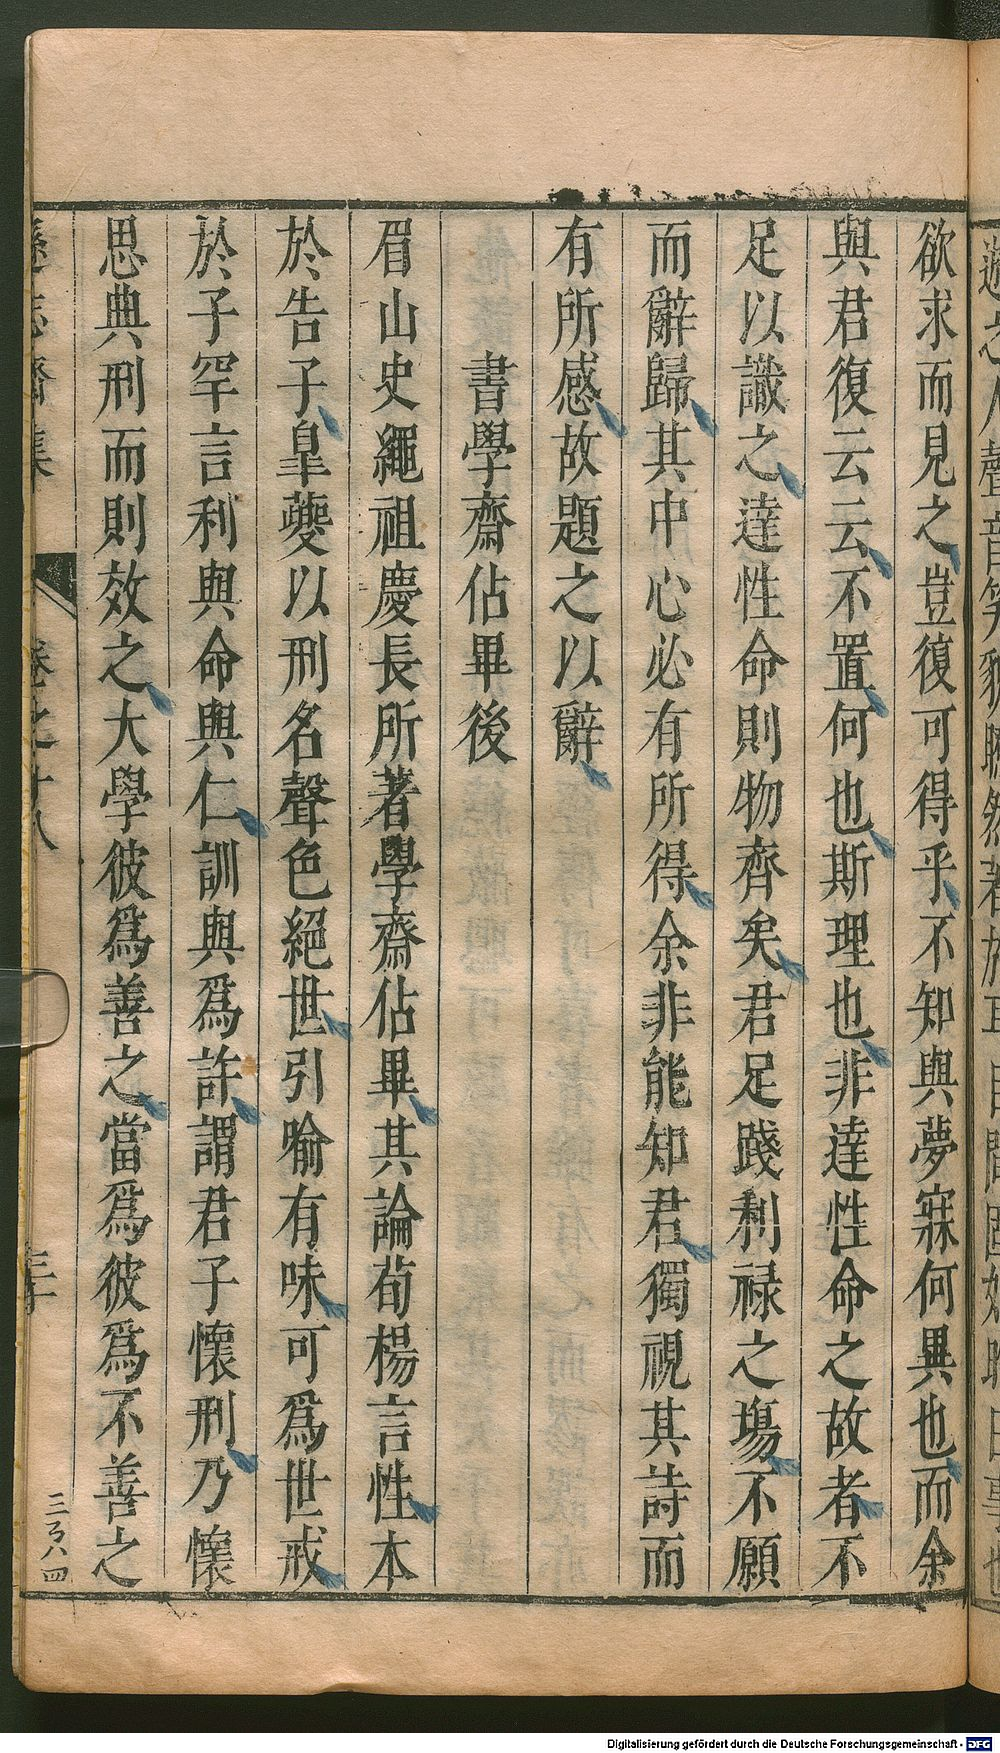 欲求而見之豈復可得乎不知與夢寐何異也而余
與君復云云不置何也斯理也非達性命之故者不
足以識之達性命則物齊矣君足踐利祿之塲不願
而辭歸其中心必有所得余非能知君獨視其詩而
有所感故題之以辭
書學齋佔畢後
眉山史繩祖慶長所著學齋佔畢其論荀楊言性本
於告子皐夔以刑名聲色絕世引喻有味可爲世戒
於子罕言利與命與仁訓與爲許謂君子懷刑乃懷
思典刑而則效之大學彼爲善之當爲彼爲不善之
遜志齋集 卷之十八 三十
三百八四
Digitalisierung gefördert durch die Deutsche Forschungsgemeinschaft - DFG